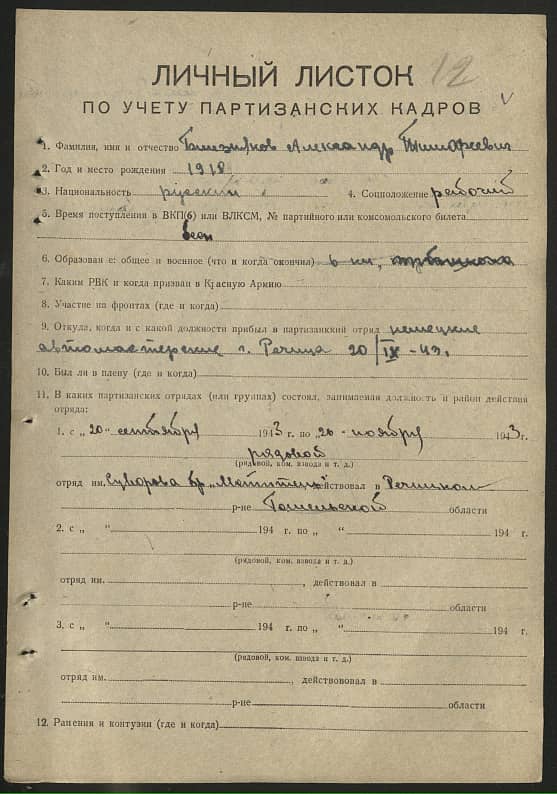 12
ЛИЧНЫЙ ЛИСТОК
ПО УЧЕТУ ПАРТИЗАНСКИХ КАДРОВ
1. Фамилия, имя и отчество Близняков Александр Тимофеевич
2. Год и место рождения 1918
3. Национальность русский 4. Соцположение рабочий
5. Время поступления в ВКП(б) или ВЛКСМ, № партийного или комсомольского билета
6. Образован е: общее и военное (что и когда окончил) 6 кл,
7. Каким РВК и когда призван в Красную Армию
8. Участие на фронтах (где и когда)
9. Откуда, когда и с какой должности прибыл в партизанкий отряд немецкие
автомастерские г. Речица 20/IX-43г.
10. Был ли в плену (где и когда)
11. В каких партизанских отрядах (или группах) состоял, занимаемая должность и район действия
отряда:
1. с „20" сентября 1943 г. по „20- ноября 1943г.
рядовой
(рядовой, ком. взвода и т. д.)
отряд им. Суворова бр. действовал в Речицком
р-не Гомельской области
2. с „ " 194 г. по „ " 194 г.
(рядовой, ком. взвода и т. д.)
отряд им. , действовал в
р-не области
3. с „ " 194 г. по „ " 194 г.
(рядовой, ком. взвода и т. д.)
отряд им. , действовал в
р-не области
12. Ранения и контузии (где и когда)